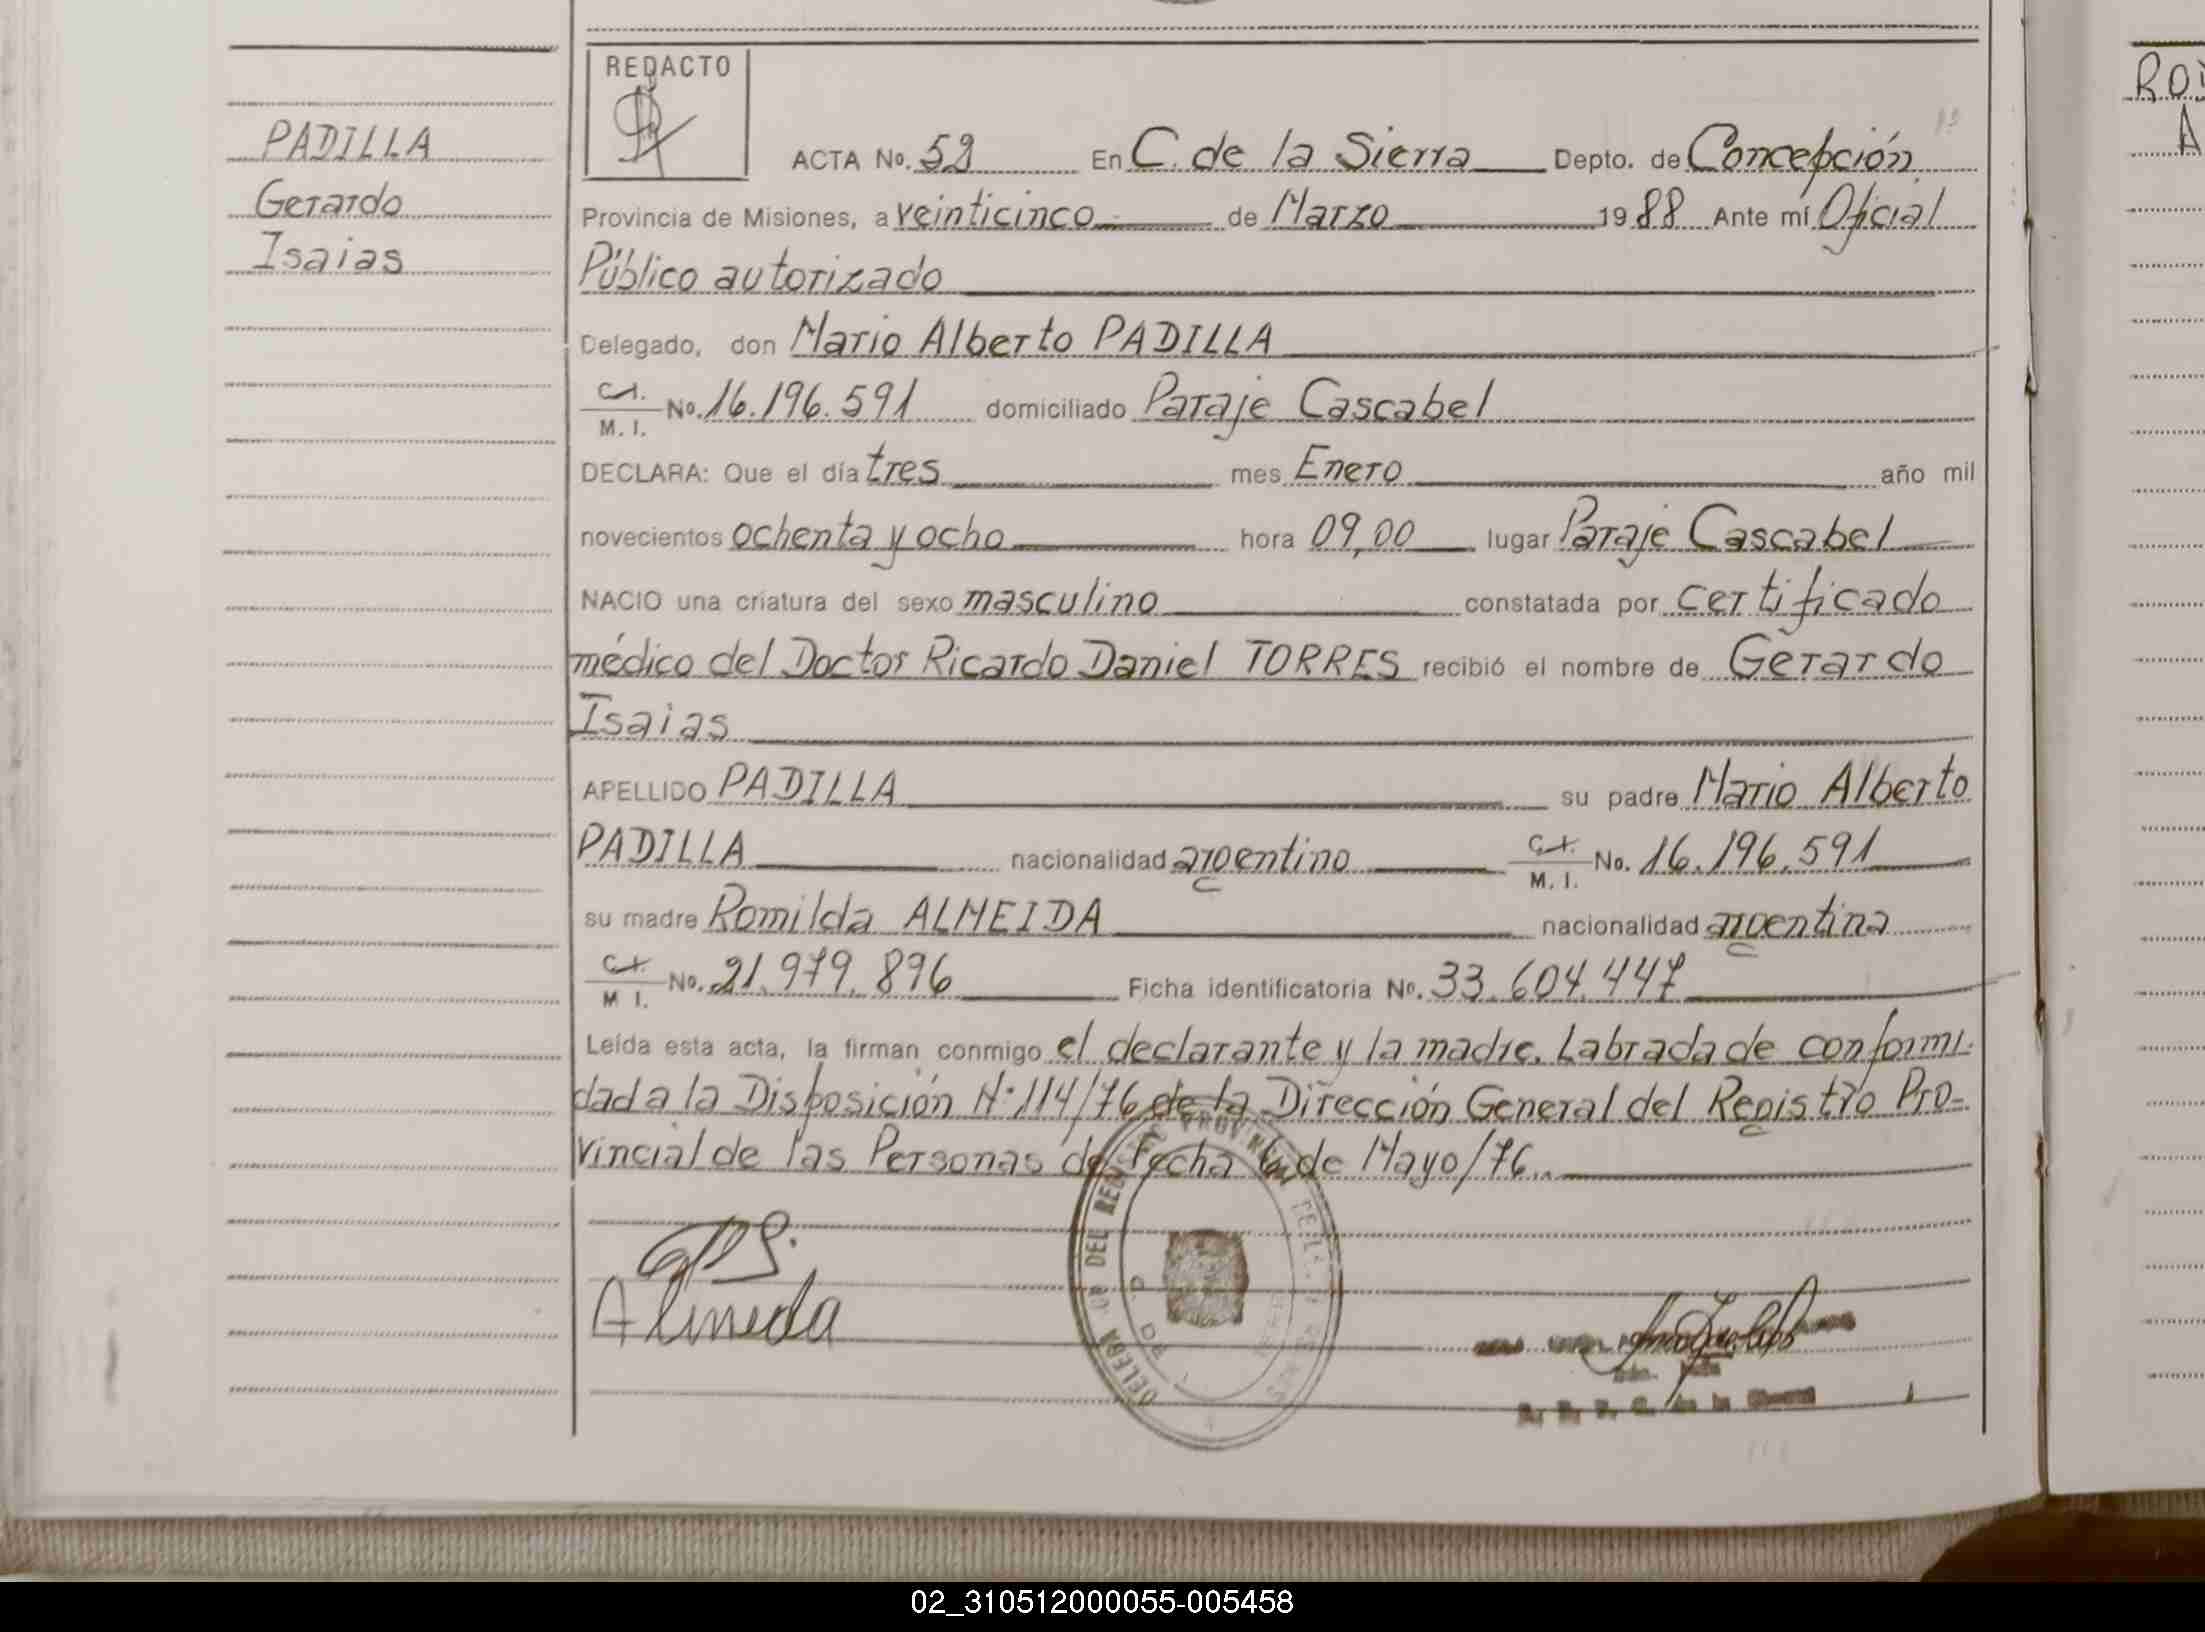 REDACTO
PADILLA
Gerardo
Isaias
ACTA No. 52 En C. de la Sierra Depto. de Concepción
Provincia de Misiones, a veinticinco de Marzo 1988 Ante mí Oficial
Público autorizado
Delegado, don Mario Alberto PADILLA
C.I.
M. I. No. 16.196.591 domiciliado Paraje Cascabel
DECLARA: Que el día tres mes Enero año mil
novecientos ochenta y ocho hora 09,00 lugar Paraje Cascabel
NACIO una criatura del sexo masculino constatada por certificado
médico del Doctor Ricardo Daniel TORRES recibió el nombre de Gerardo
Isaias
APELLIDO PADILLA su padre Mario Alberto
PADILLA nacionalidad argentino C.I. M. I. No. 16.196.591
su madre Romilda ALMEIDA nacionalidad argentina
C.I. M I. No. 21.979.896 Ficha identificatoria No. 33.604.447
Leída esta acta, la firman conmigo el declarante y la madre. Labrada de conformi-
dad a la Disposición N° 114/76 de la Dirección General del Registro Pro-
vincial de las Personas de Fecha 6 de Mayo/76.
Almeda
ROD
A
02_310512000055-005458